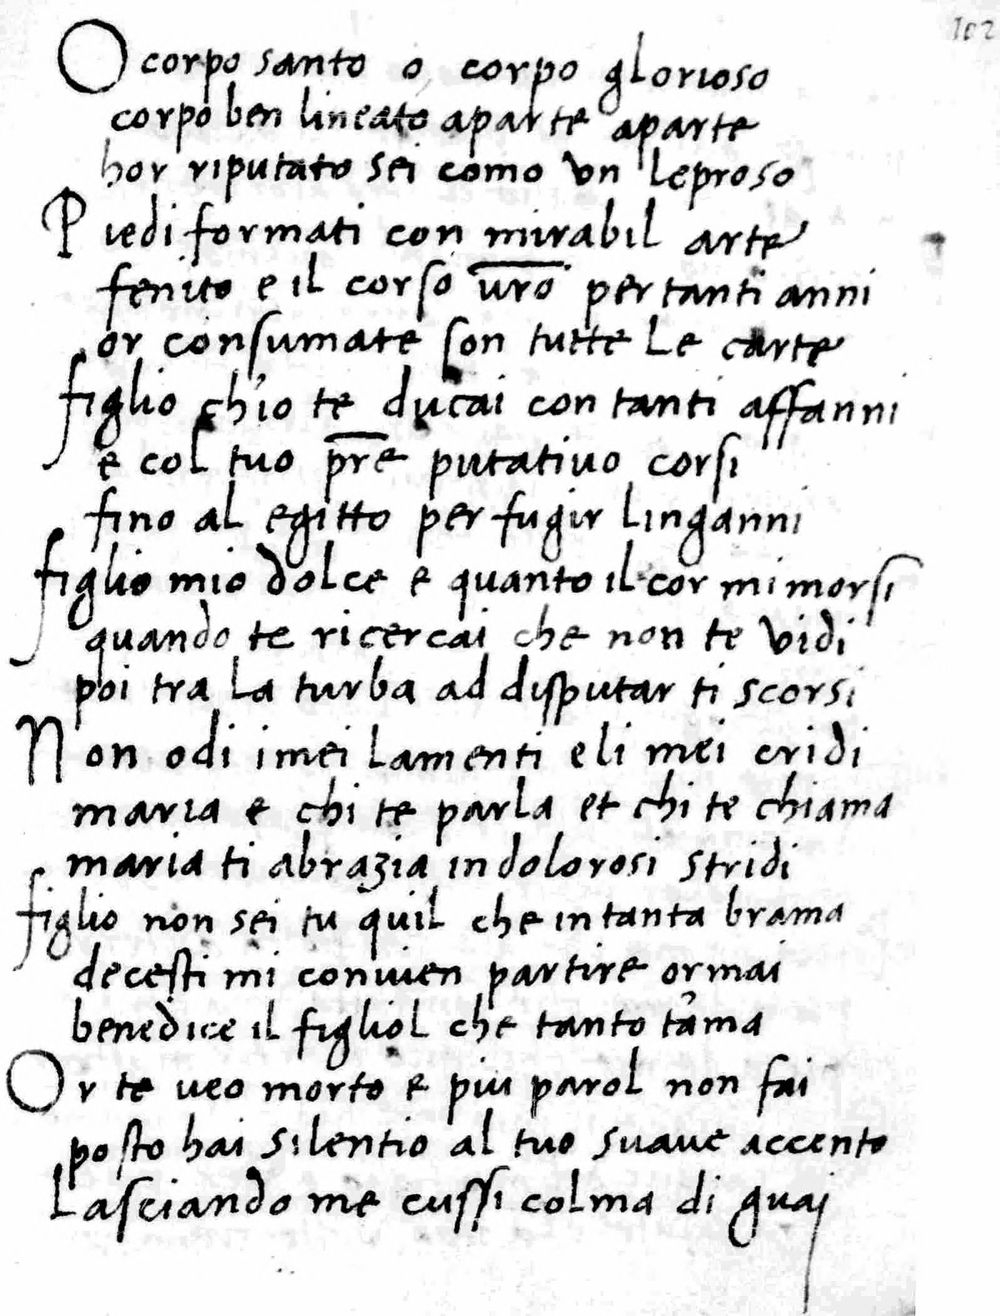 102
O corpo santo o corpo glorioso
corpo ben lineato aparte aparte
hor riputato sei como un leproso
Piedi formati con mirabil arte
fenito e il corso vr̅o per tanti anni
or consumate son tutte le carte
figlio ch'io te ducai con tanti affanni
e col tuo pr̅e putativo corsi
fino al egitto per fugir linganni
figlio mio dolce e quanto il cor mi morsi
quando te ricercai che non te vidi
poi tra la turba ad disputar ti scorsi
Non odi i mei lamenti e li mei cridi
maria e chi te parla et chi te chiama
maria ti abrazia in dolorosi stridi
figlio non sei tu quil che in tanta brama
decesti mi convien partire ormai
benedice il figliol che tanto t'ama
Or te veo morto e piu parol non fai
posto hai silentio al tuo suave accento
Lasciando me cussi colma di guaj